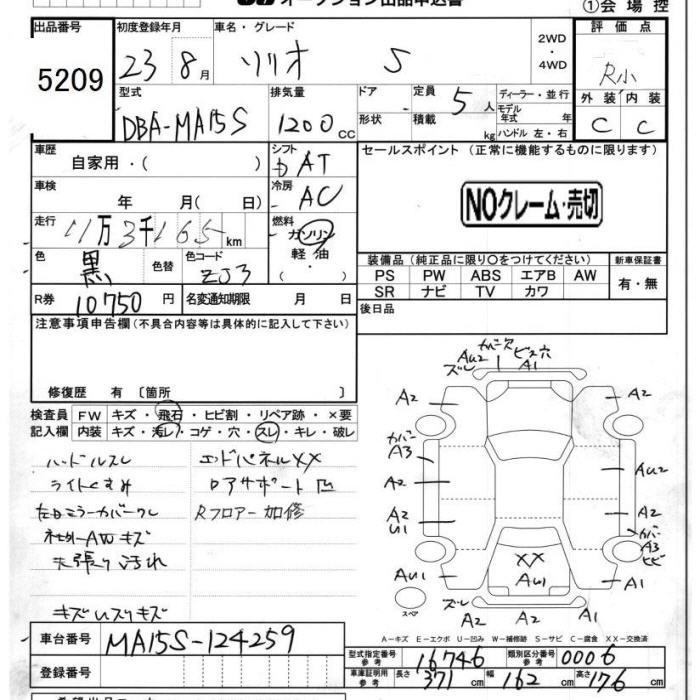 ①会場控
オークション出品申込書
出品番号
5209
初度登録年月
23 8月
車名・グレード
ソリオ S
2WD
・
4WD
評価点
R小
外装 内装
C C
型式
DBA-MA15S
排気量
1200cc
ドア
形状
定員 5人
積載 kg
ディーラー・並行
モデル年式 年
ハンドル 左・右
車歴
自家用・( )
シフト
AT
車検
年 月( 日)
冷房
AC
走行
11万3千165km
燃料
ガソリン
軽油
・( )
色
黒
色替
色コード
ZJ3
R券 10750円
名変通知期限 月 日
セールスポイント(正常に機能するものに限ります)
NOクレーム・売切
装備品(純正品に限り○をつけてください)
PS PW ABS エアB AW
SR ナビ TV カワ
新車保証書
有・無
後日品
注意事項申告欄(不具合内容等は具体的に記入して下さい)
修復歴 有〔箇所 〕
検査員記入欄
FW キズ・飛石・ヒビ割・リペア跡・×要
内装 キズ・汚レ・コゲ・穴・スレ・キレ・破レ
ハンドルスレ
ライトくすみ
左ドアミラーカバーワレ
AWキズ
天張り汚れ
キズ
エンドパネルXX
ロアサポート凹
Rフロアー加修
カバー欠 ビス穴
AU2
ズレ
A1
A2 A2
カバー
A3
A2
AU2
A2
U1
A2
カバー
A3
ヒビ
XX
AU1
AU1
A1
ズレ
A2 A2
スペア
A-キズ E-エクボ U-凹み W-補修跡 S-サビ C-腐食 XX-交換済
車台番号 MA15S-124259
登録番号
型式指定番号 参考 16746
類別区分番号 参考 0006
車庫証明用 参考 長さ 371cm 幅 162cm 高さ 176cm